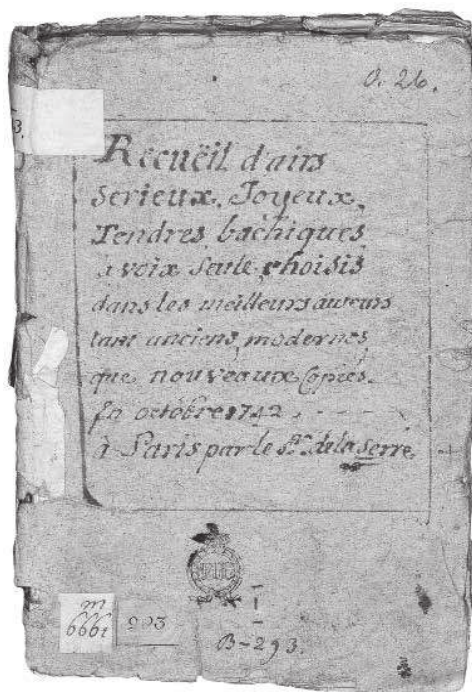 O. 26.
3.
Recuëil d'airs
serieux, Joyeux,
Tendres, bachiques,
à voix seule, choisis
dans les meilleurs auteurs
tant anciens, modernes,
que nouveaux Copiés.
En octobre 1742
à Paris par le Sr. de la Serre.
m
6661
203
B-293.